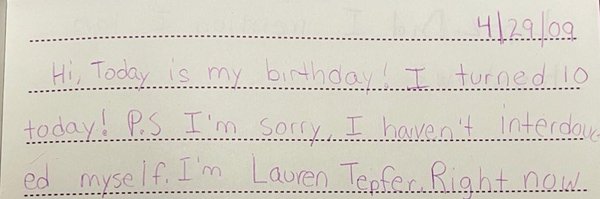 4/29/09
Hi, Today is my birthday! I turned 10
today! P.S I'm sorry, I haven't interdouc
ed myself. I'm Lauren Tepfer. Right now